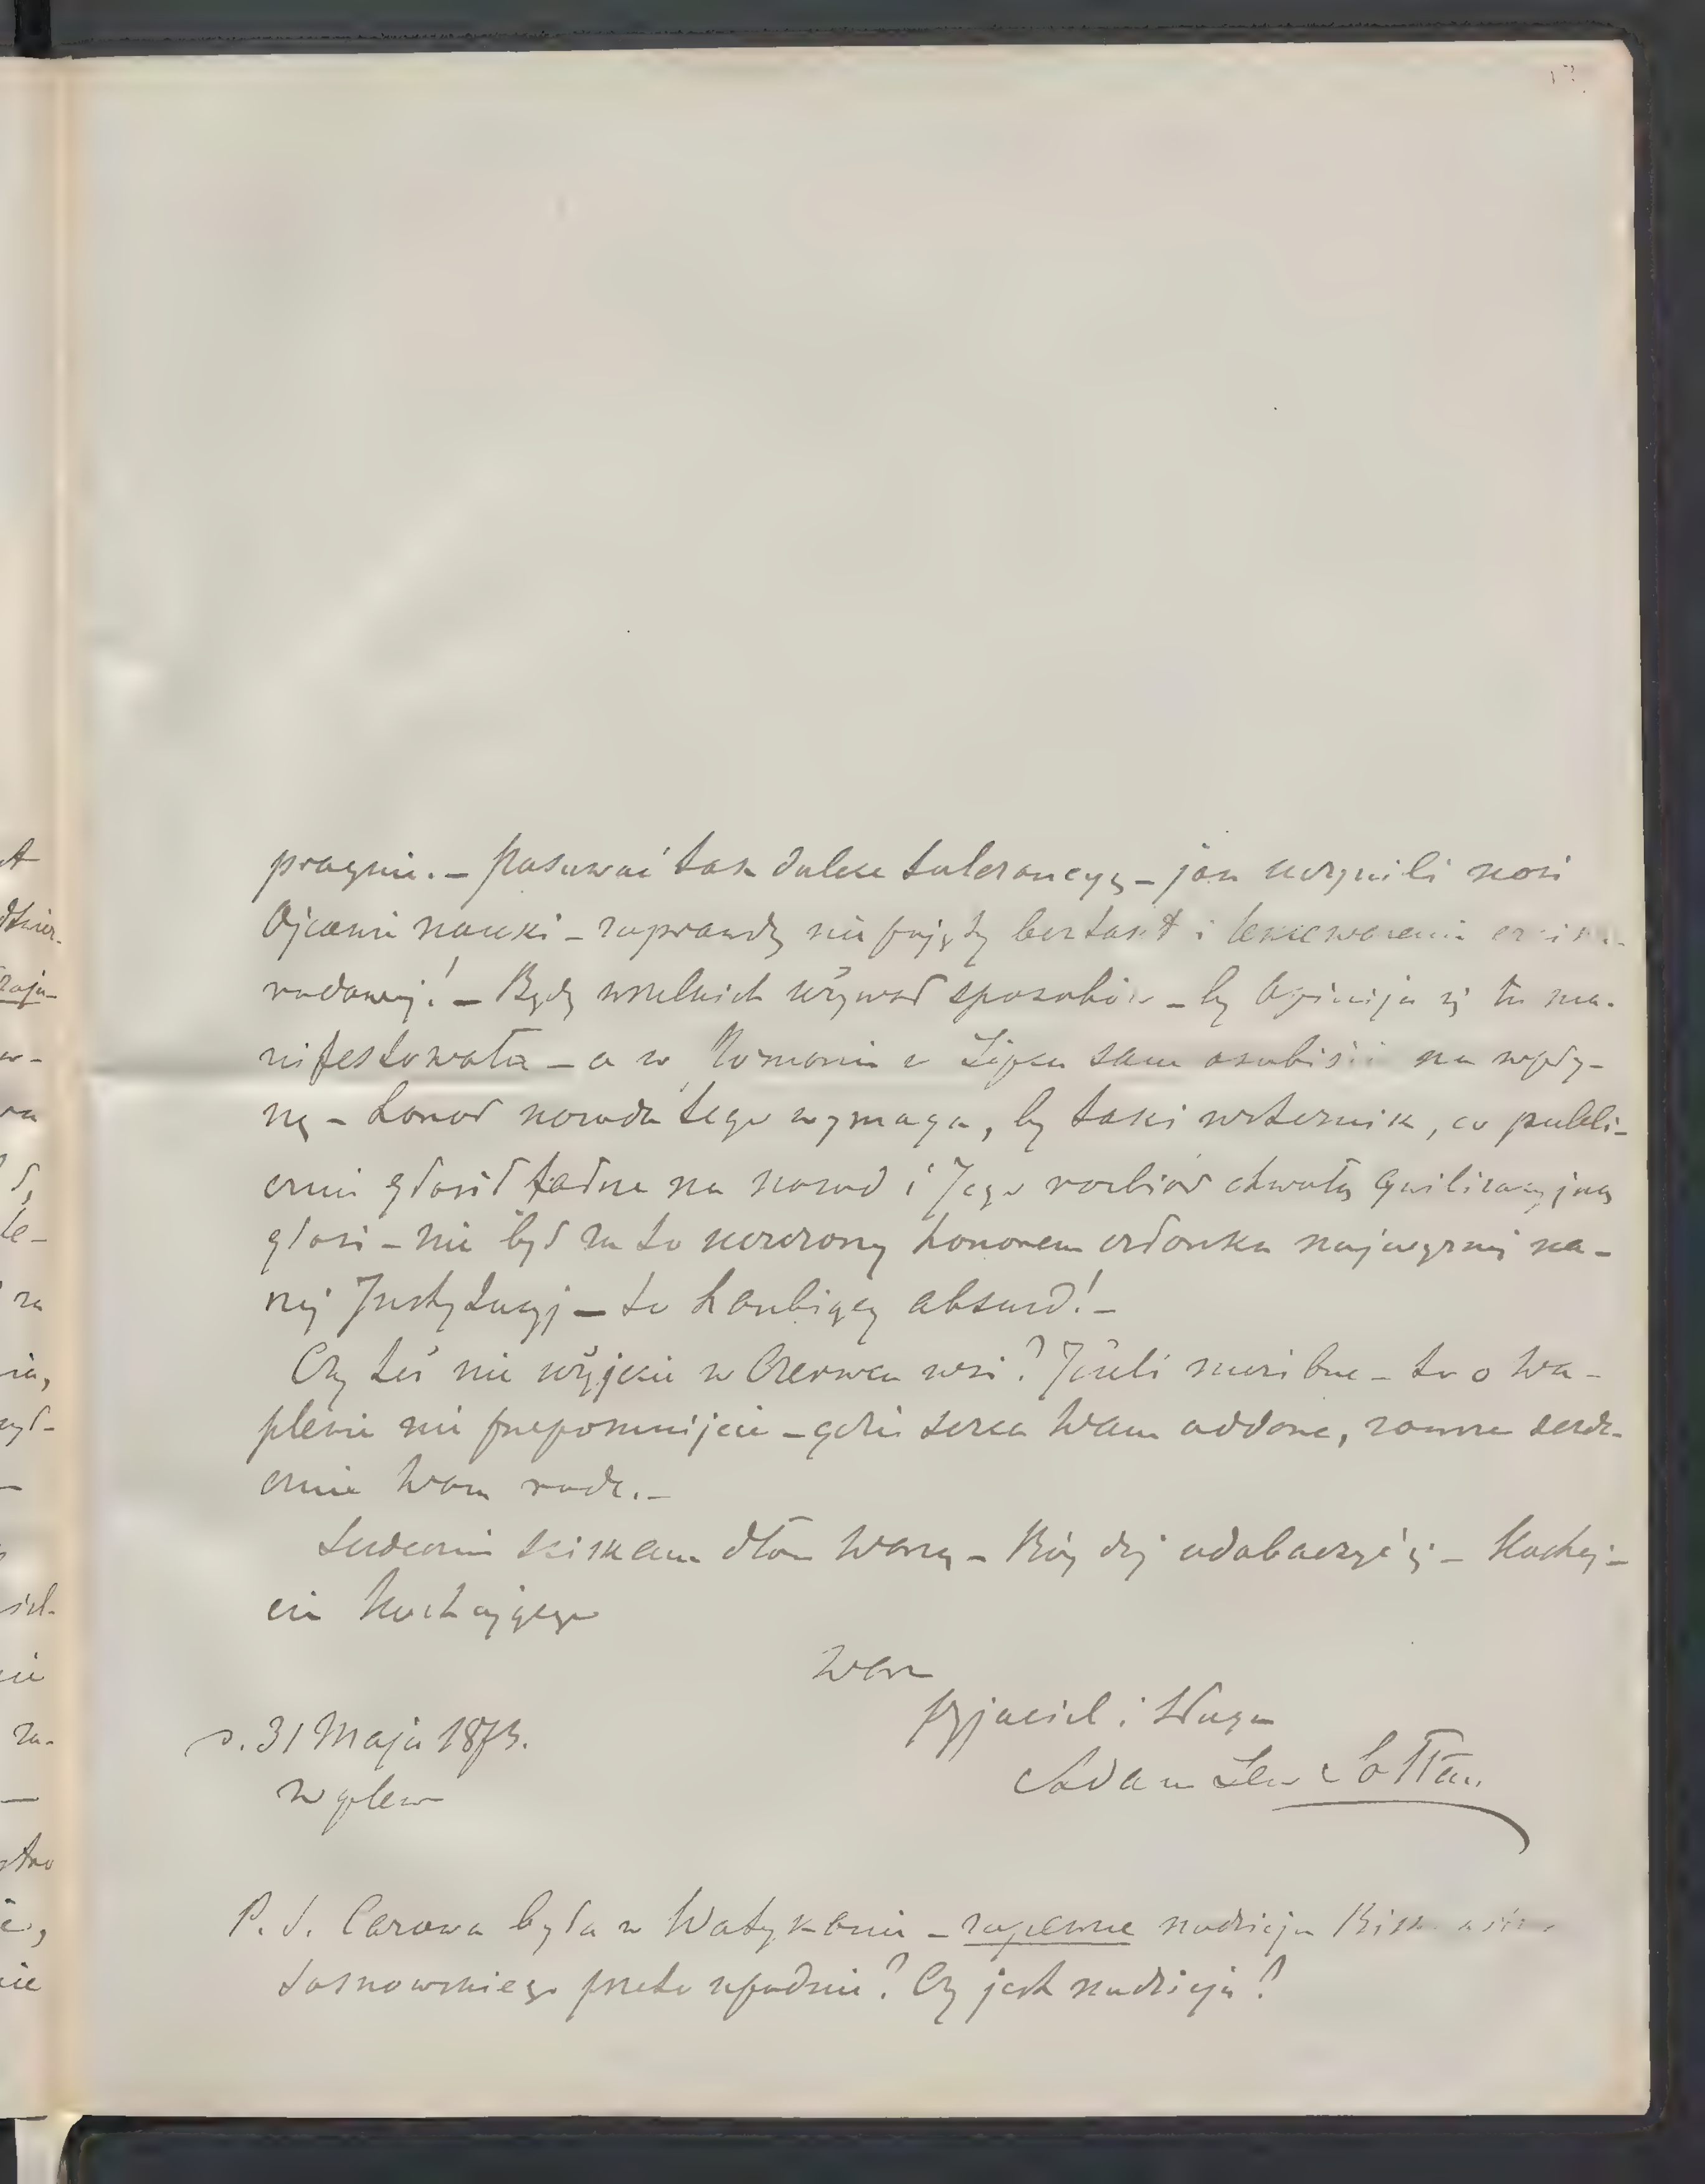 pragnie. – posuwać tak dalece tolerancyą – jak uczynili nasi
Ojcowie nauki – zaprawdę nie pojęty beztakt i lekceważenie
rodowej! – Będę wszelkich używał sposobów – by Opinija się tu ma-
nifestowała – a w Poznaniu w Lipcu sam osobiście na wędy-
nę – honor narodu tego wymaga, by taki wstecznik, co publi-
cznie głosił na narod i Jego rozbiór chwałą cywilizacyjną
głosi – nie był za to uczczony honorem członka najwyższej na-
szej Instytucyj – to hańbiący absurd! –
Czy też nie użyjecie w Czerwcu wsi? Jeśli możibne – to o Wa-
plewie nie przepomnijcie – gdzie serca Wam oddane, zawsze serde-
cznie Wam rade. –
Serdecznie ściskam dłoń Waszą – Bóg daj odobaczyć się – Kochaj-
cie Kochającego
Wasz
przyjaciel i sługa
Adam Lew Sołtan
d. 31 Maja 1873.
Waplewo
P. S. Carowa była w Watykanie – zapewne nadzieja
Sosnowskiego przeto upadnie? Czy jest nadzieja?